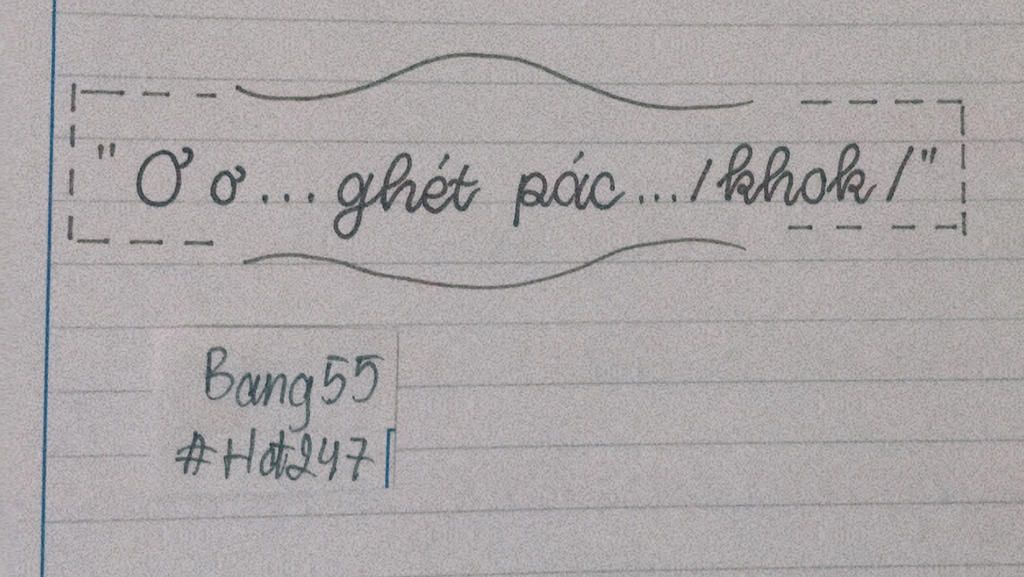 "Ơ ơ...ghét pác.../khok/"
Bang55
#Hot247